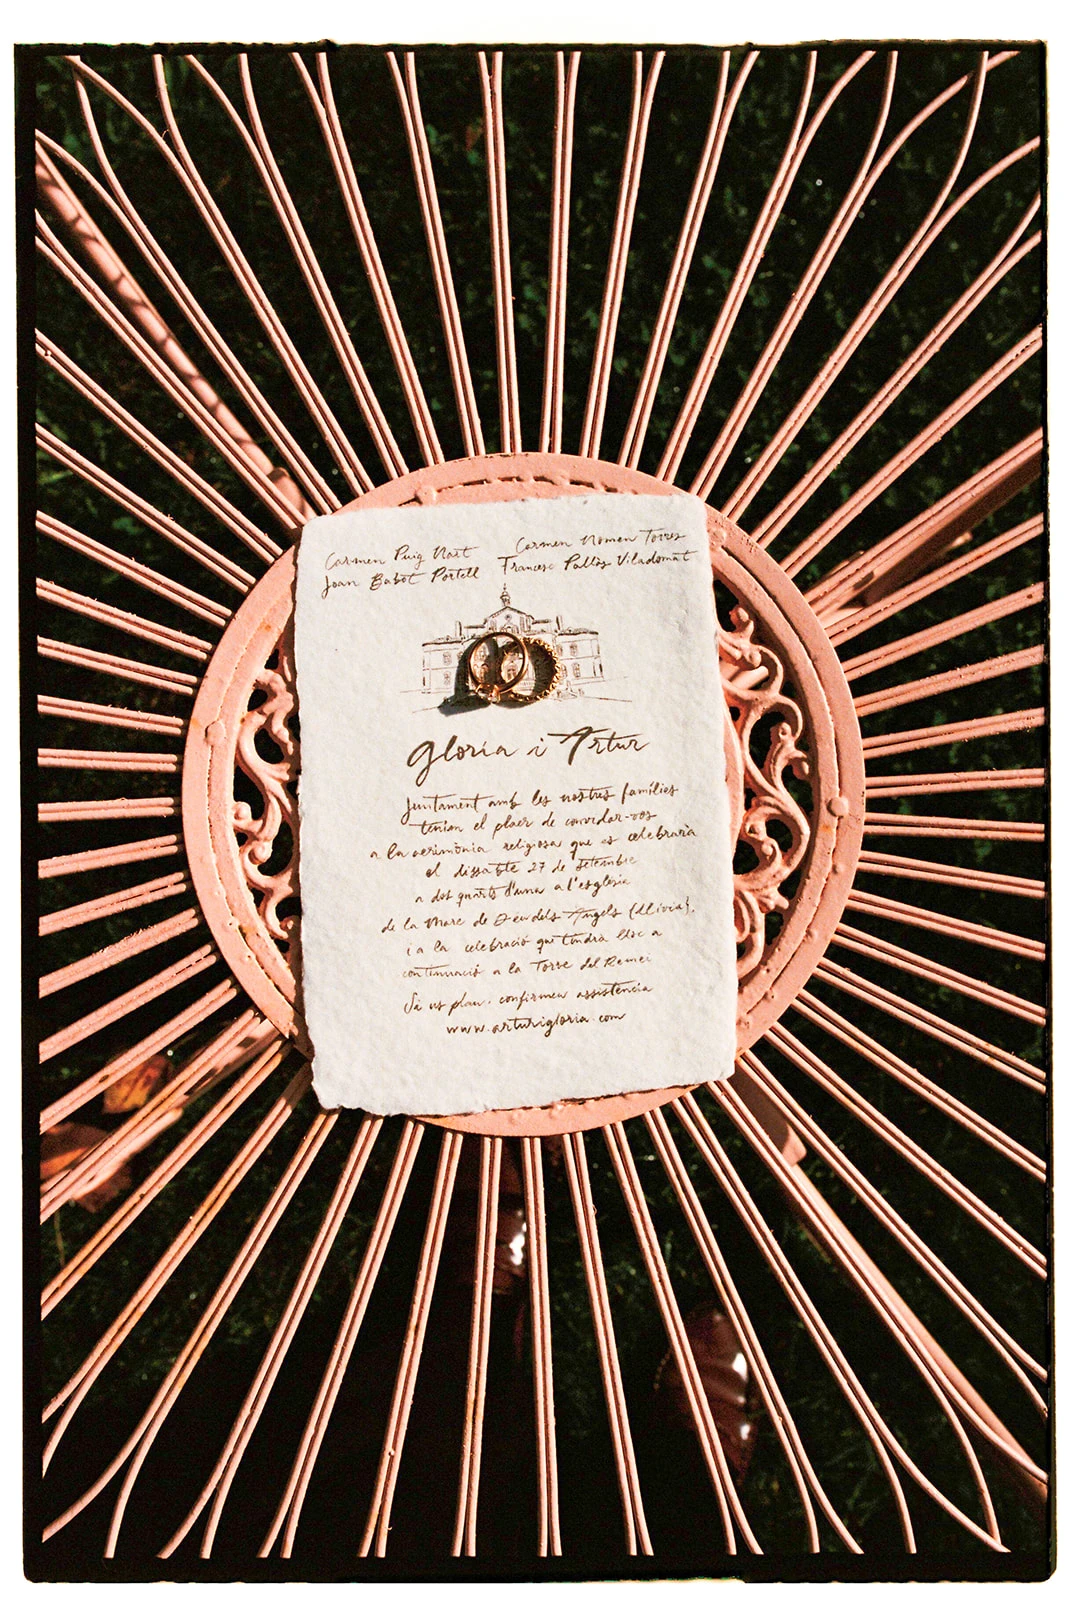 Carmen Puig Nart
Joan Babot Portell
Carmen Nomen Torres
Francesc Pallàs Viladomat
Glòria i Artur
Juntament amb les nostres famílies
tenim el plaer de convidar-vos
a la cerimònia religiosa que es celebrarà
el dissabte 27 de setembre
a dos quarts d'una a l'església
de la Mare de Déu dels Àngels (Llívia),
i a la celebració que tindrà lloc a
continuació a la Torre del Remei
Si us plau, confirmeu assistència
www.arturigloria.com